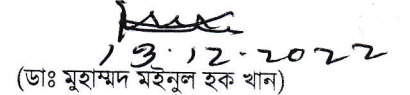 13.12.2022
(ডাঃ মুহাম্মদ মইনুল হক খান)